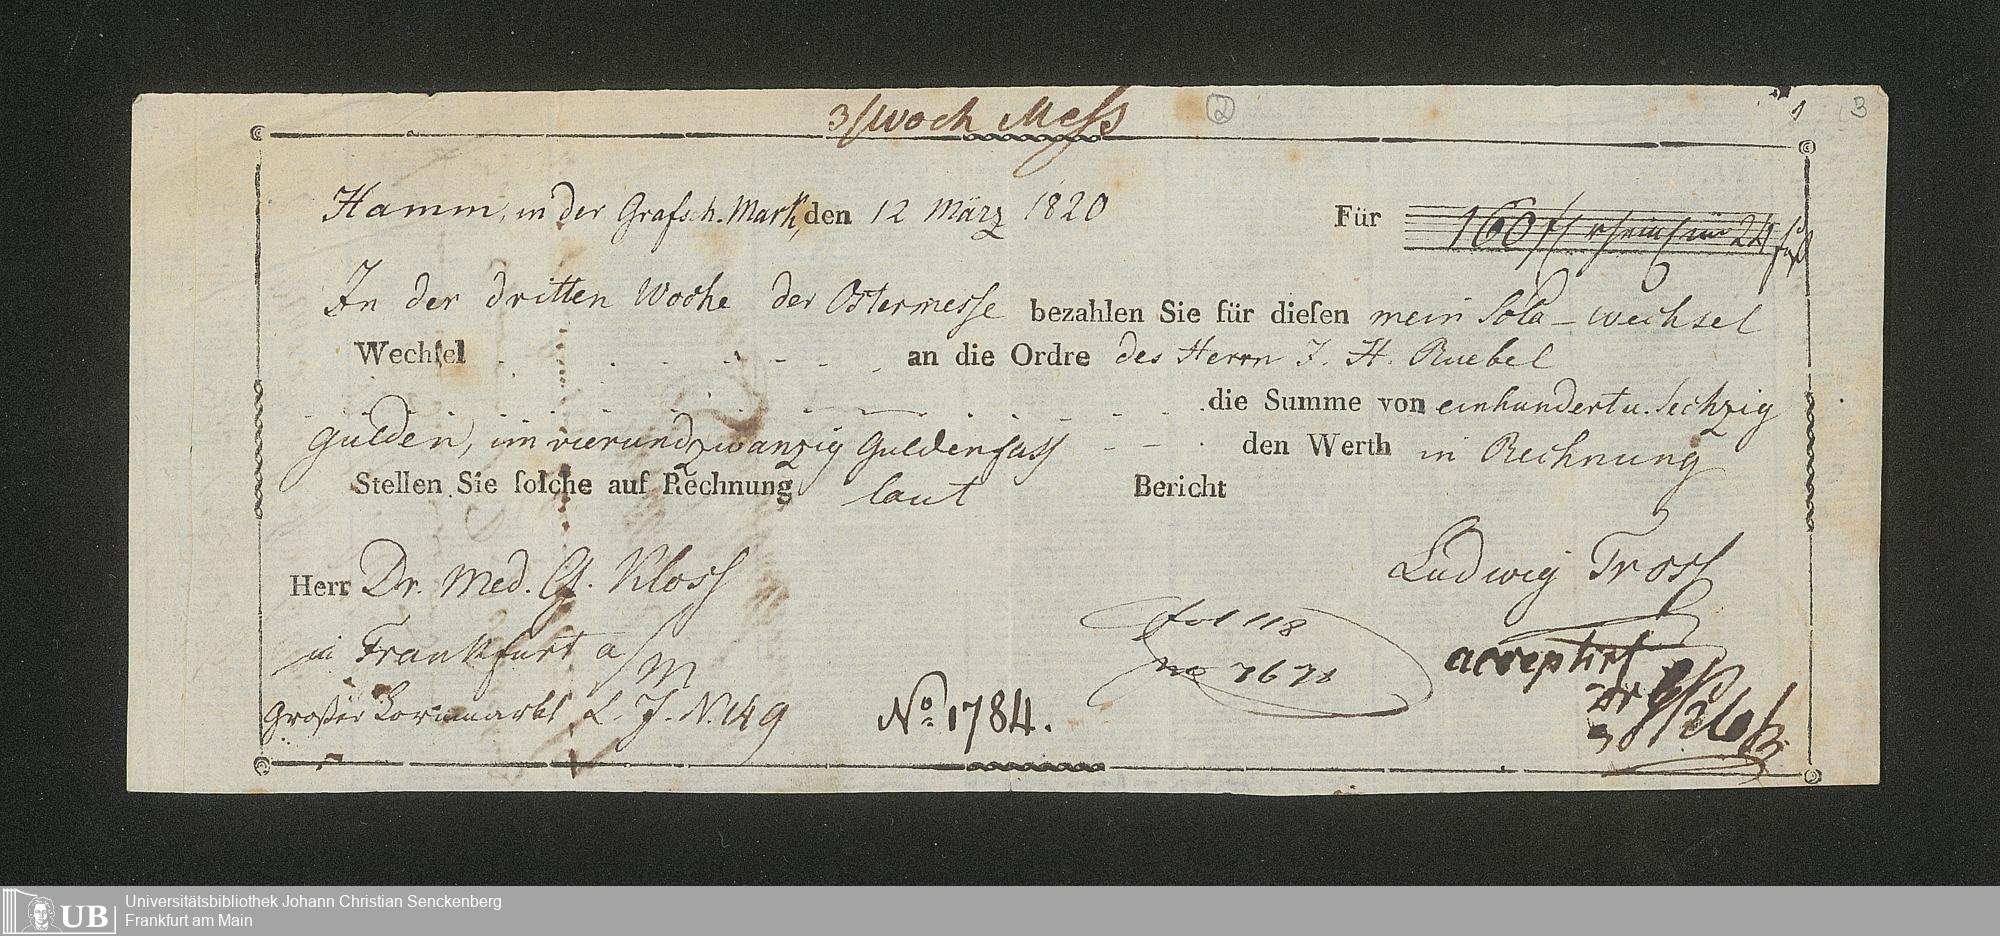 3/Woch Mess
2
1
3
Hamm, in der Grafsch. Mark, den 12 März 1820 Für 160 fl rheinl im 24 fß
In der dritten Woche der Ostermesse bezahlen Sie für dieſen mein Sola-Wechsel
Wechſel an die Ordre des Herrn J. H. Ruebel
die Summe von einhundert u. Sechzig
Gulden, im vierundzwanzig Guldenfuss den Werth in Rechnung
Stellen Sie ſolche auf Rechnung laut Bericht
Ludwig Tross
Herr Dr. Med. G. Kloss
in Frankfurt a/M
Großer Kornmarkt L. J. N. 149
fol 118
no 7678
No. 1784.
acceptirt
Dr G Kloß
Universitätsbibliothek Johann Christian Senckenberg
Frankfurt am Main
UB